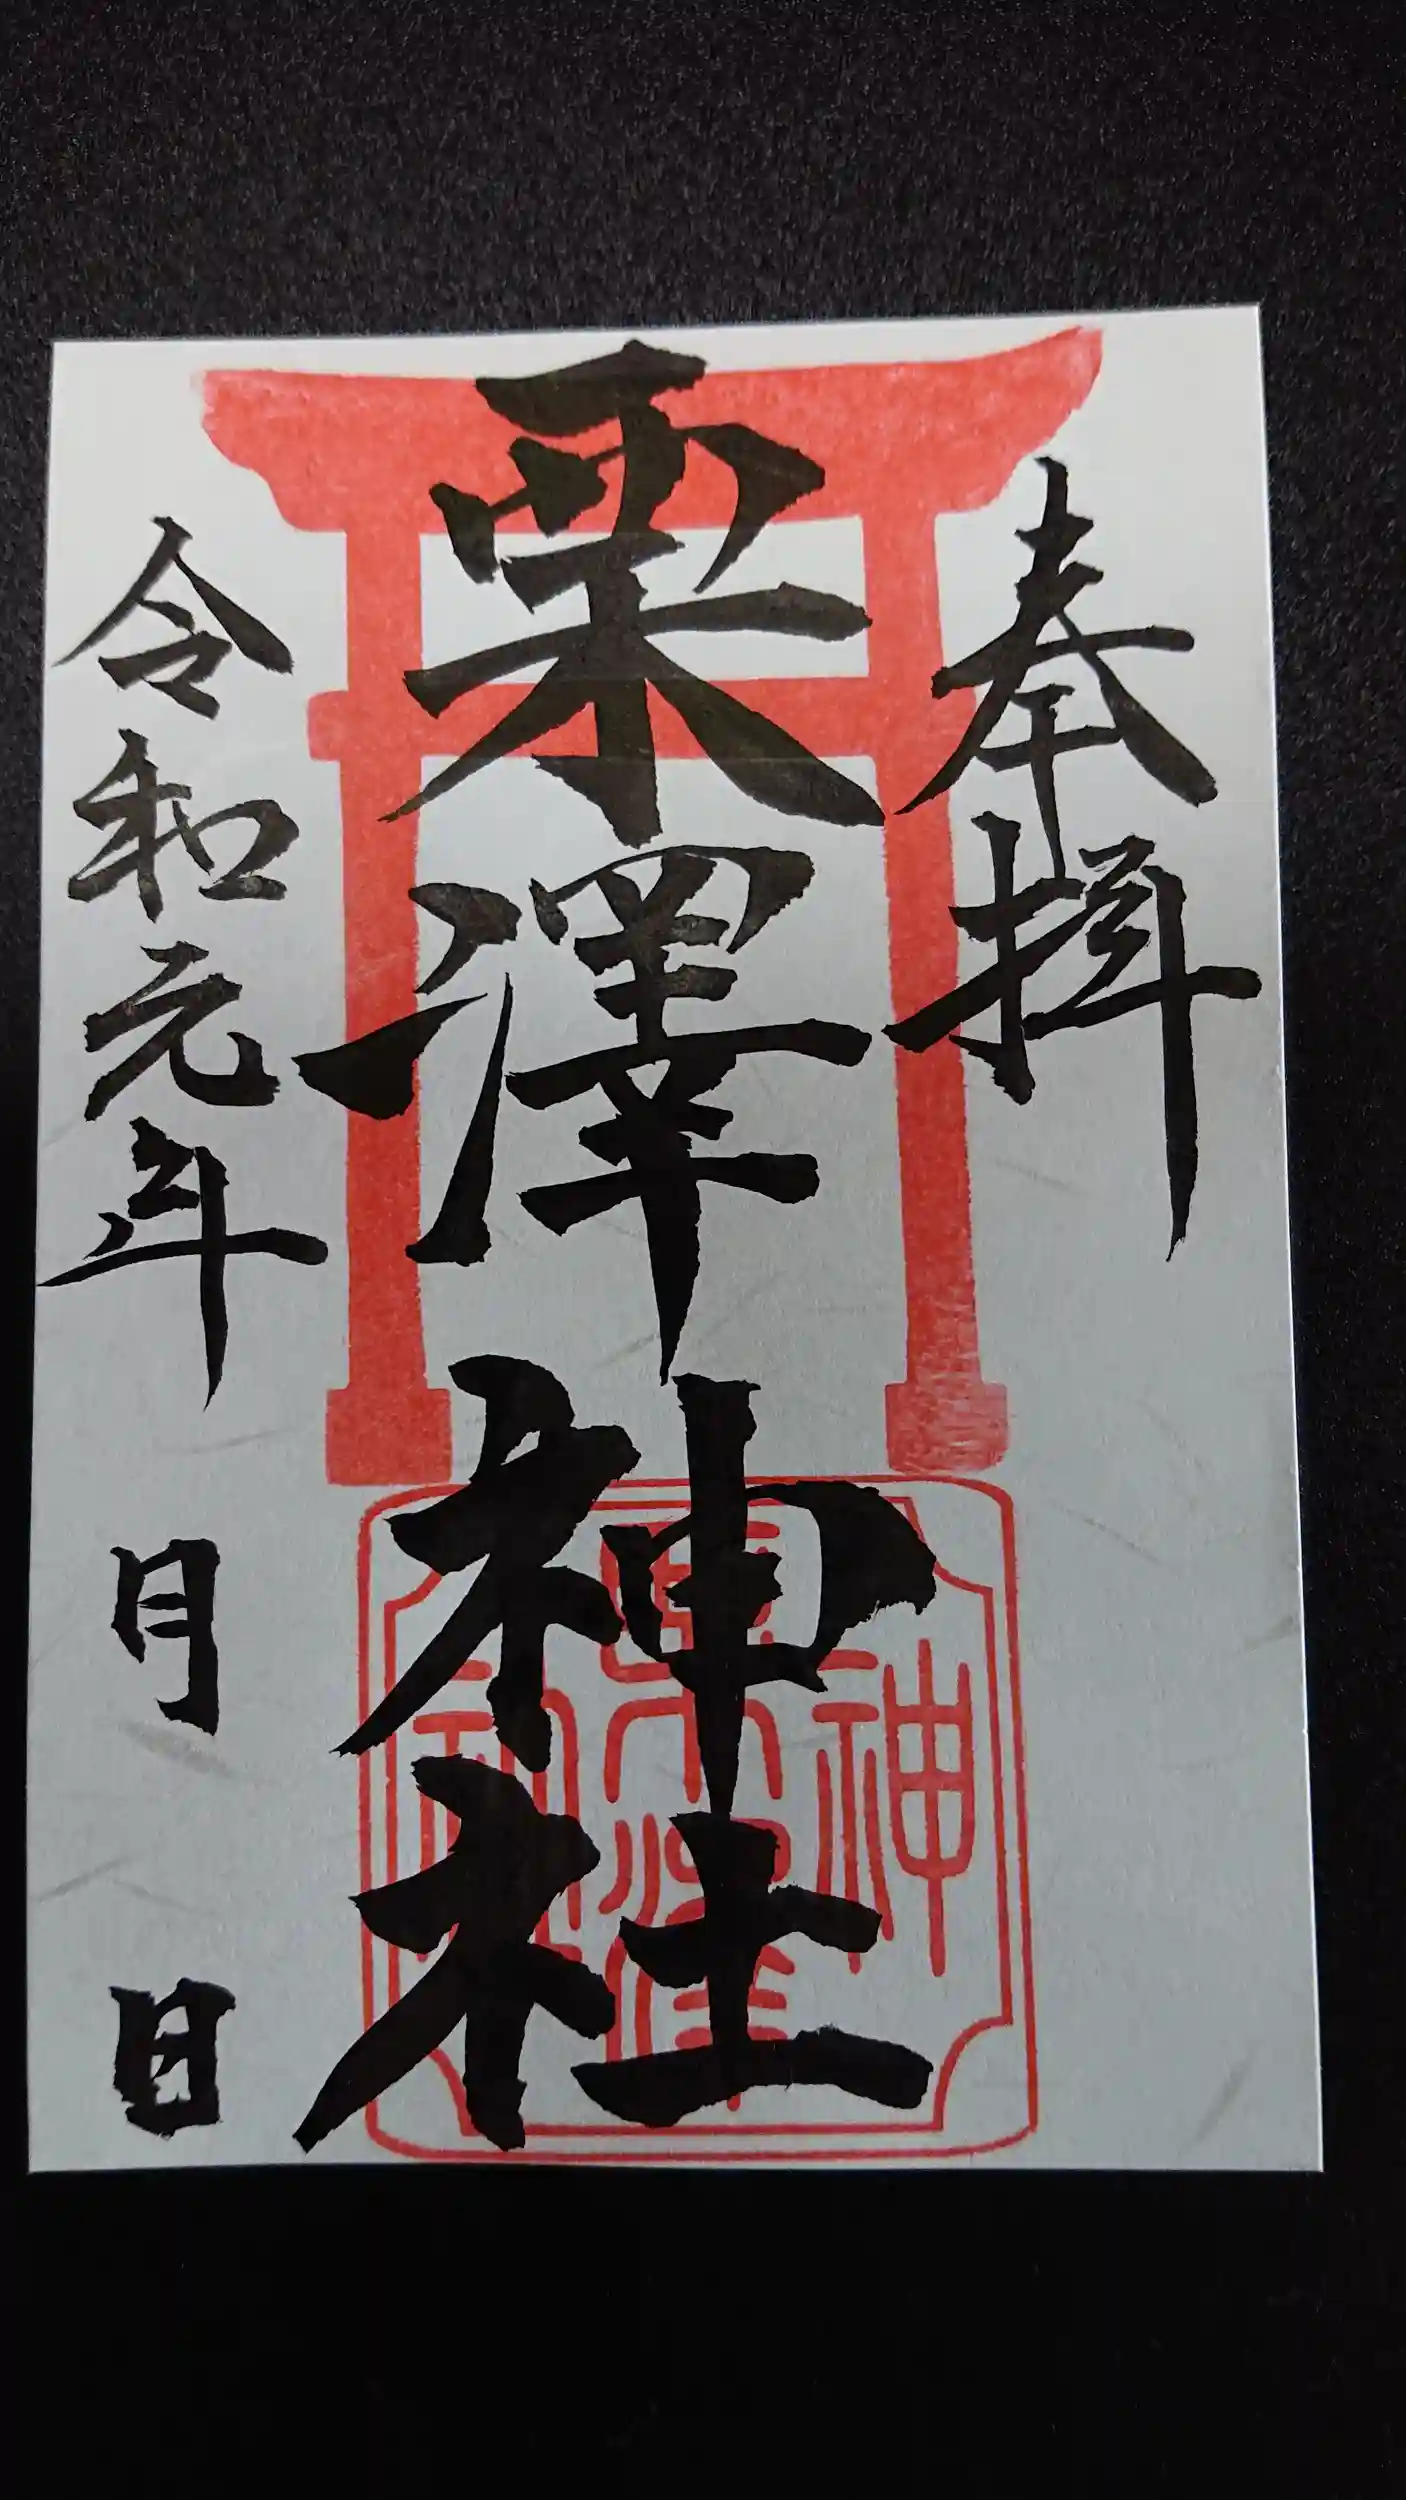 奉拝
栗澤神社
令和元年 月 日
神
栗澤